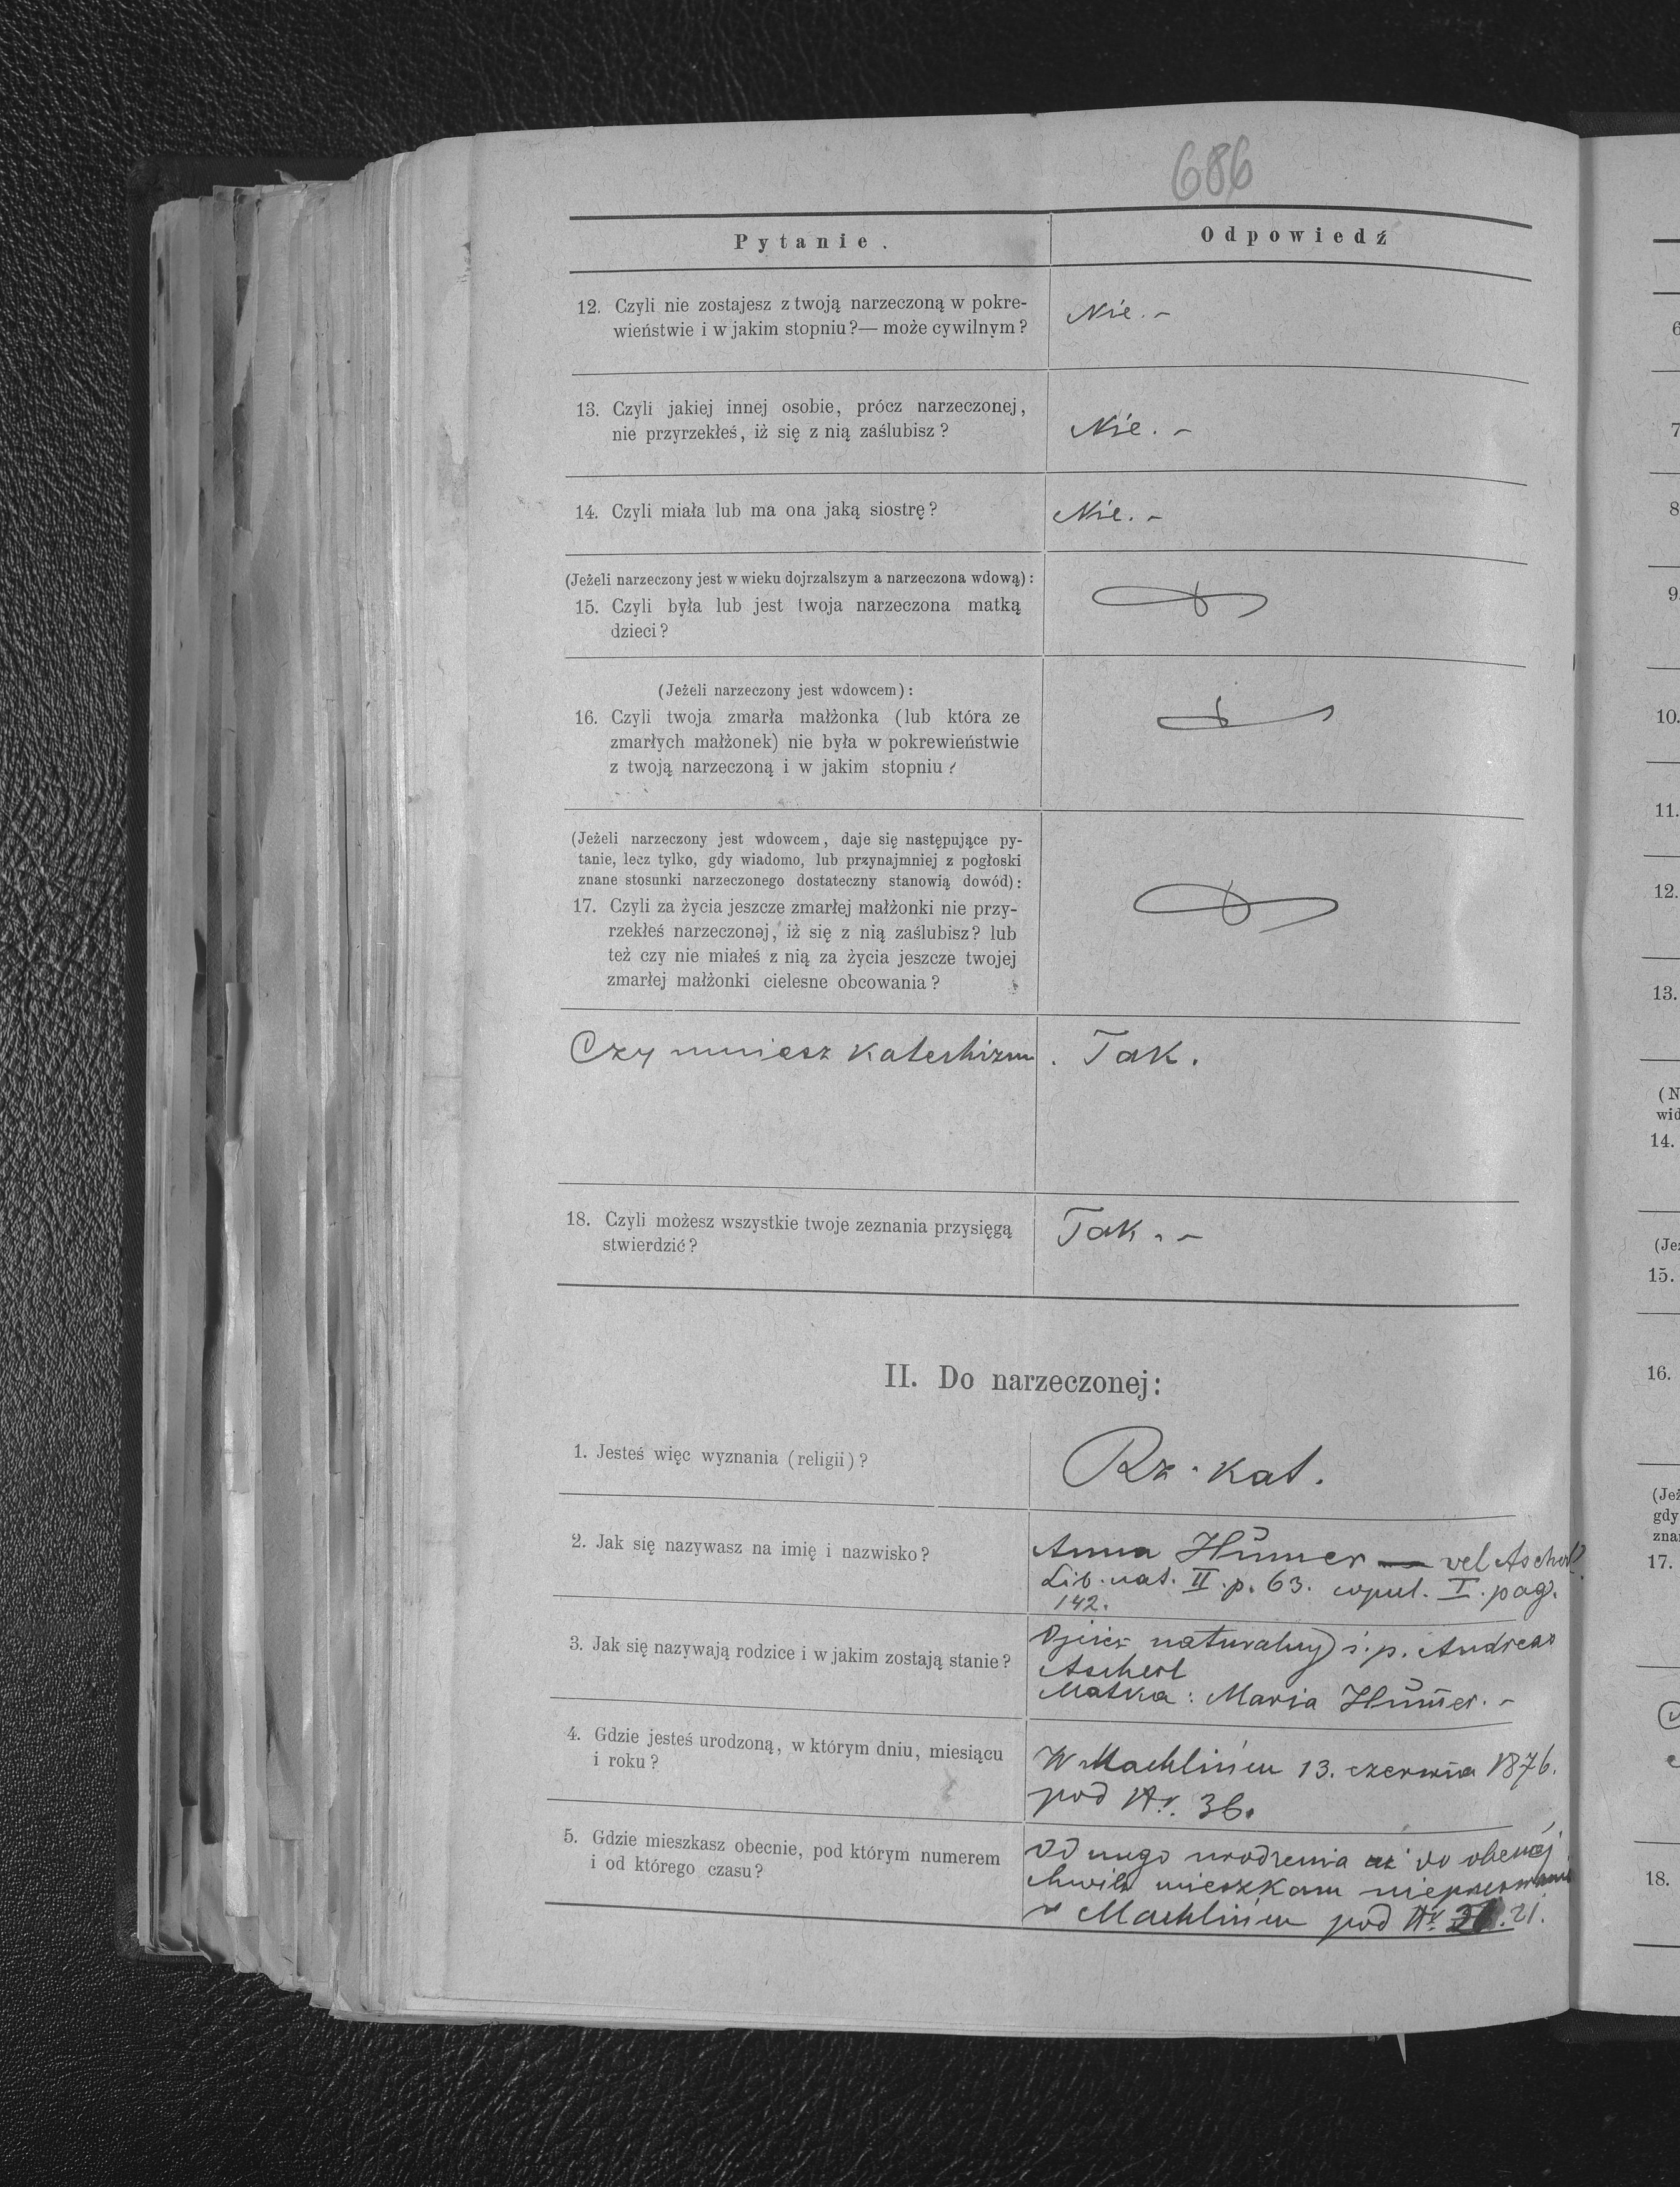 686
Pytanie.
Odpowiedź
12. Czyli nie zostajesz z twoją narzeczoną w pokre-
wieństwie i w jakim stopniu?— może cywilnym?
Nie. –
13. Czyli jakiej innej osobie, prócz narzeczonej,
nie przyrzekłeś, iż się z nią zaślubisz?
Nie. –
14. Czyli miała lub ma ona jaką siostrę?
Nie. –
(Jeżeli narzeczony jest w wieku dojrzalszym a narzeczona wdową):
15. Czyli była lub jest twoja narzeczona matką
dzieci?
(Jeżeli narzeczony jest wdowcem):
16. Czyli twoja zmarła małżonka (lub która ze
zmarłych małżonek) nie była w pokrewieństwie
z twoją narzeczoną i w jakim stopniu?
(Jeżeli narzeczony jest wdowcem, daje się następujące py-
tanie, lecz tylko, gdy wiadomo, lub przynajmniej z pogłoski
znane stosunki narzeczonego dostateczny stanowią dowód):
17. Czyli za życia jeszcze zmarłej małżonki nie przy-
rzekłeś narzeczonej, iż się z nią zaślubisz? lub
też czy nie miałeś z nią za życia jeszcze twojej
zmarłej małżonki cielesne obcowania?
Czy umiesz katechizm. Tak.
18. Czyli możesz wszystkie twoje zeznania przysięgą
stwierdzić?
Tak. –
II. Do narzeczonej:
1. Jesteś więc wyznania (religii)?
Rz. kat.
2. Jak się nazywasz na imię i nazwisko?
Anna Hümer vel Ascherl
Lib. nat. II. p. 63. copul. I. pag.
142.
3. Jak się nazywają rodzice i w jakim zostają stanie?
Ojciec naturalny ś. p. Andreas
Ascherl
Matka: Maria Hümer. –
4. Gdzie jesteś urodzoną, w którym dniu, miesiącu
i roku?
W Machlińcu 13. czerwca 1876.
pod Nr. 36.
5. Gdzie mieszkasz obecnie, pod którym numerem
i od którego czasu?
Od mego urodzenia aż do obecnej
chwili mieszkam nieprzerwanie
w Machlińcu pod Nr. 21.
6
7
8
9
10.
11.
12.
13.
(N
wid
14.
(Jeż
15.
16.
(Jeż
gdy
zna
17.
18.